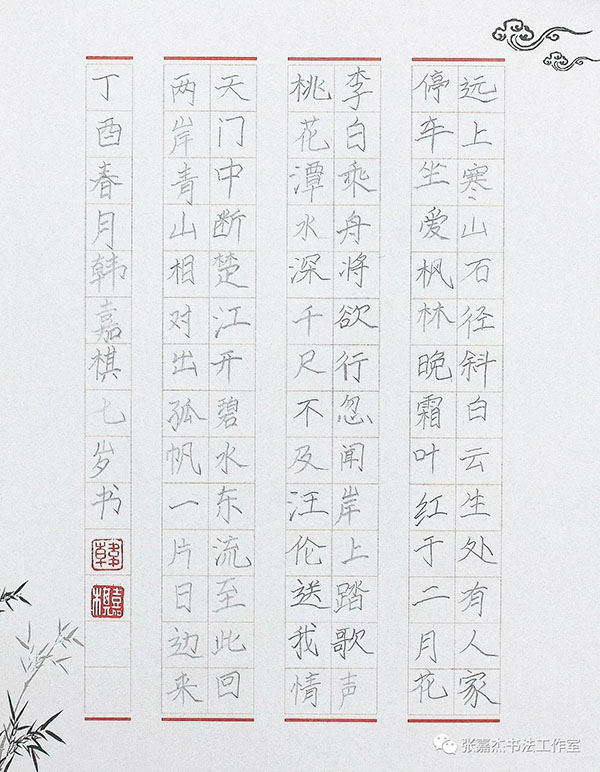 远上寒山石径斜白云生处有人家
停车坐爱枫林晚霜叶红于二月花
李白乘舟将欲行忽闻岸上踏歌声
桃花潭水深千尺不及汪伦送我情
天门中断楚江开碧水东流至此回
两岸青山相对出孤帆一片日边来
丁酉春月韩嘉棋七岁书
张嘉杰书法工作室